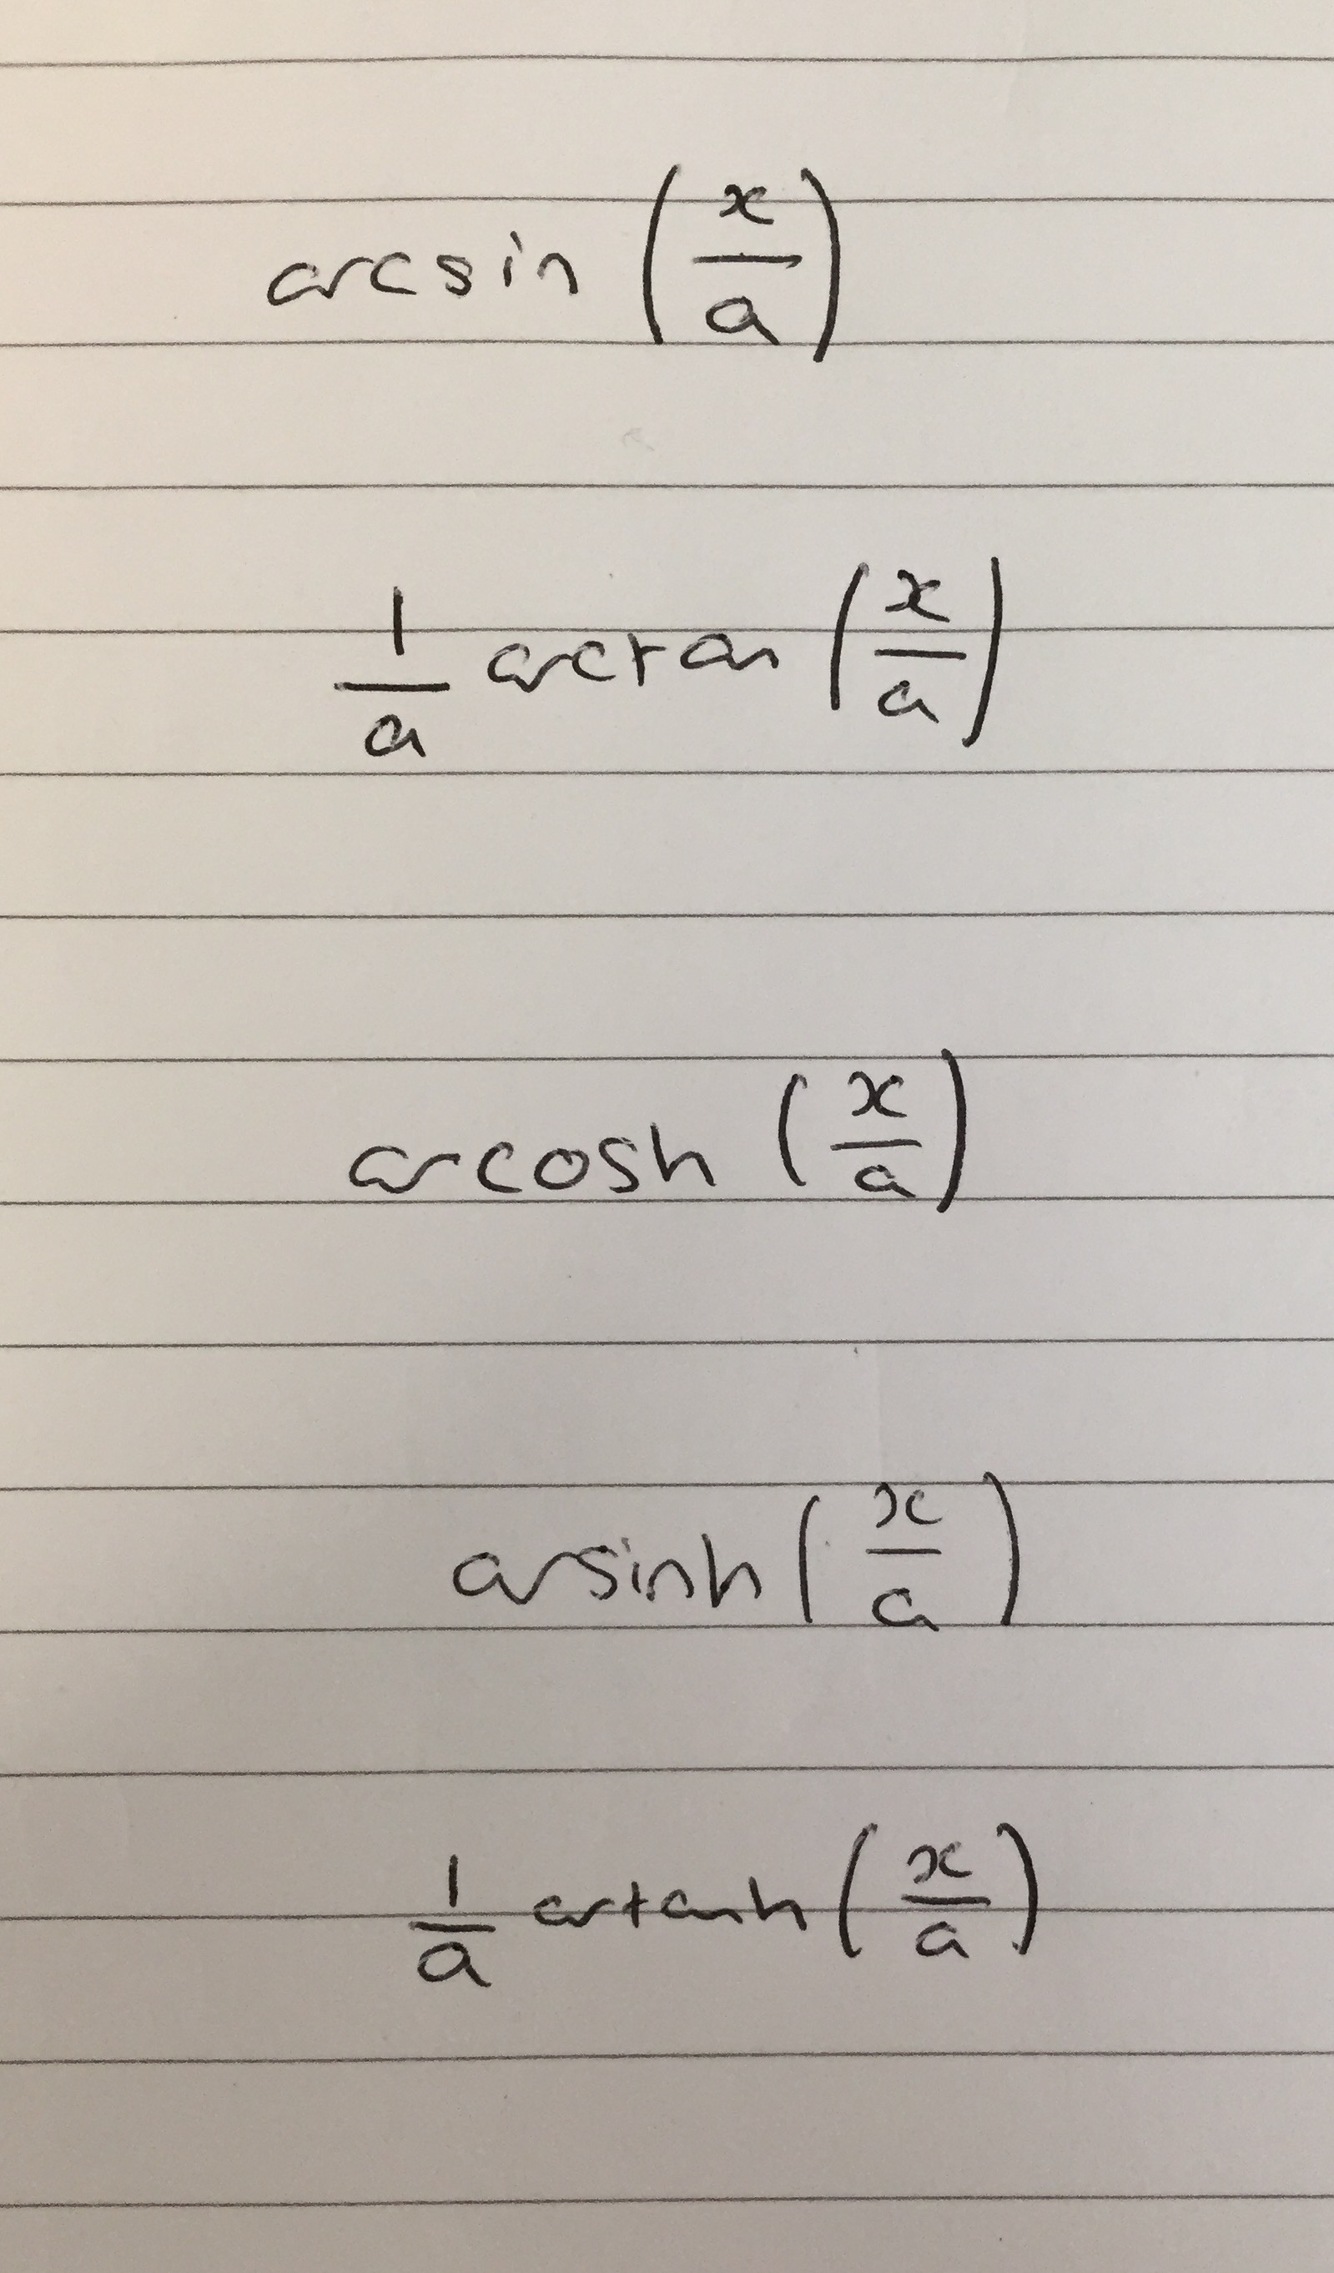 arcsin (x/a)
1/a arctan (x/a)
arcosh (x/a)
arsinh (x/a)
1/a artanh (x/a)